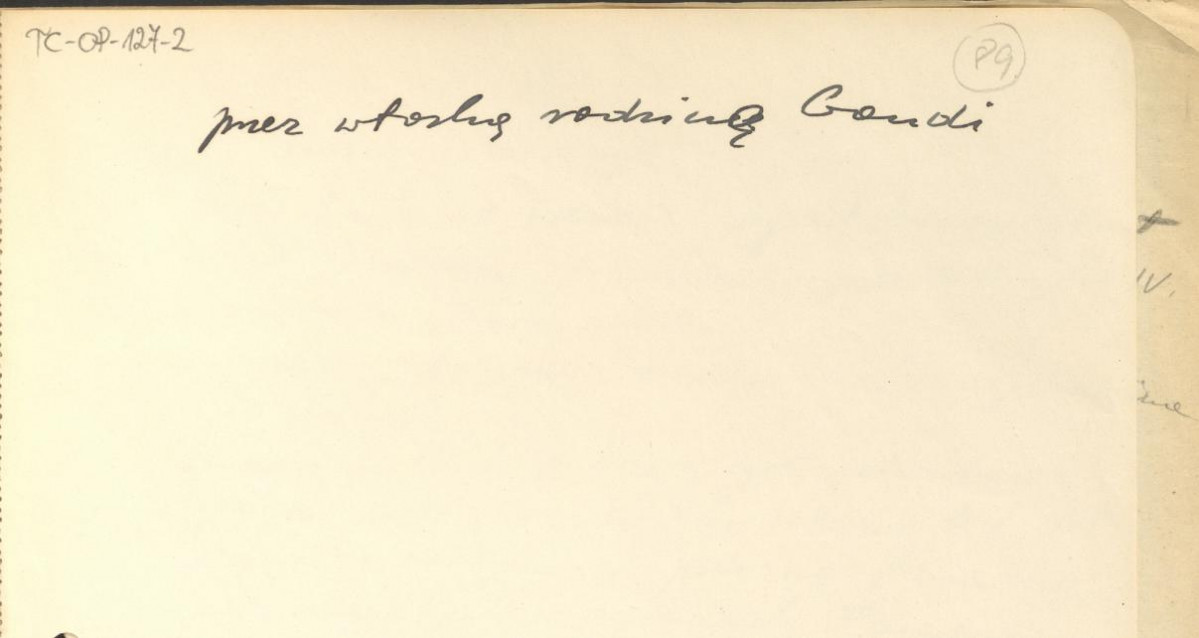 TC-OP-127-2
89
przez włoską rodzinę Gandi
IV.